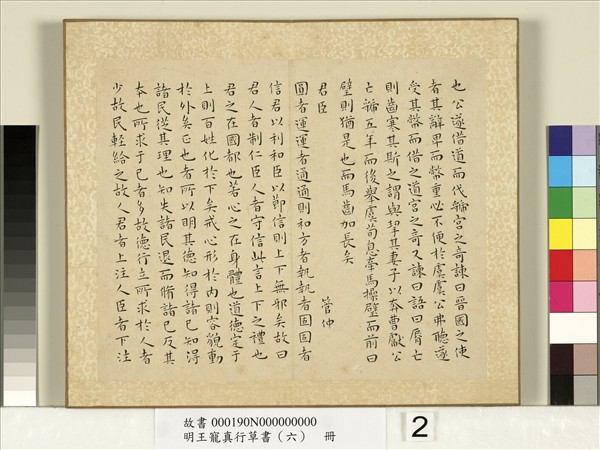 也公遂借道而伐虢宮之奇諫曰晉國之使
者其辭卑而幣重必不便於虞虞公弗聽遂
受其幣而借之道宮之奇又諫曰語曰脣亡
則齒寒其斯之謂與挈其妻子以奔曹獻公
亡虢五年而後舉虞荀息牽馬操璧而前曰
璧則猶是也而馬齒加長矣
君臣 管仲
圓者運運者通通則和方者執執者固固者
信君以利和臣以節信則上下無邪矣故曰
君人者制仁臣人者守信此言上下之禮也
君之在國都也若心之在身體也道德定于
上則百姓化於下矣戒心形於內則容貌動
於外矣正也者所以明其德知得諸己知得
諸民從其理也知失諸民退而脩諸己反其
本也所求于己者多故德行立所求於人者
少故民輕給之故人君者上注人臣者下注
故書 000190N000000000
明王寵真行草書（六） 冊
2